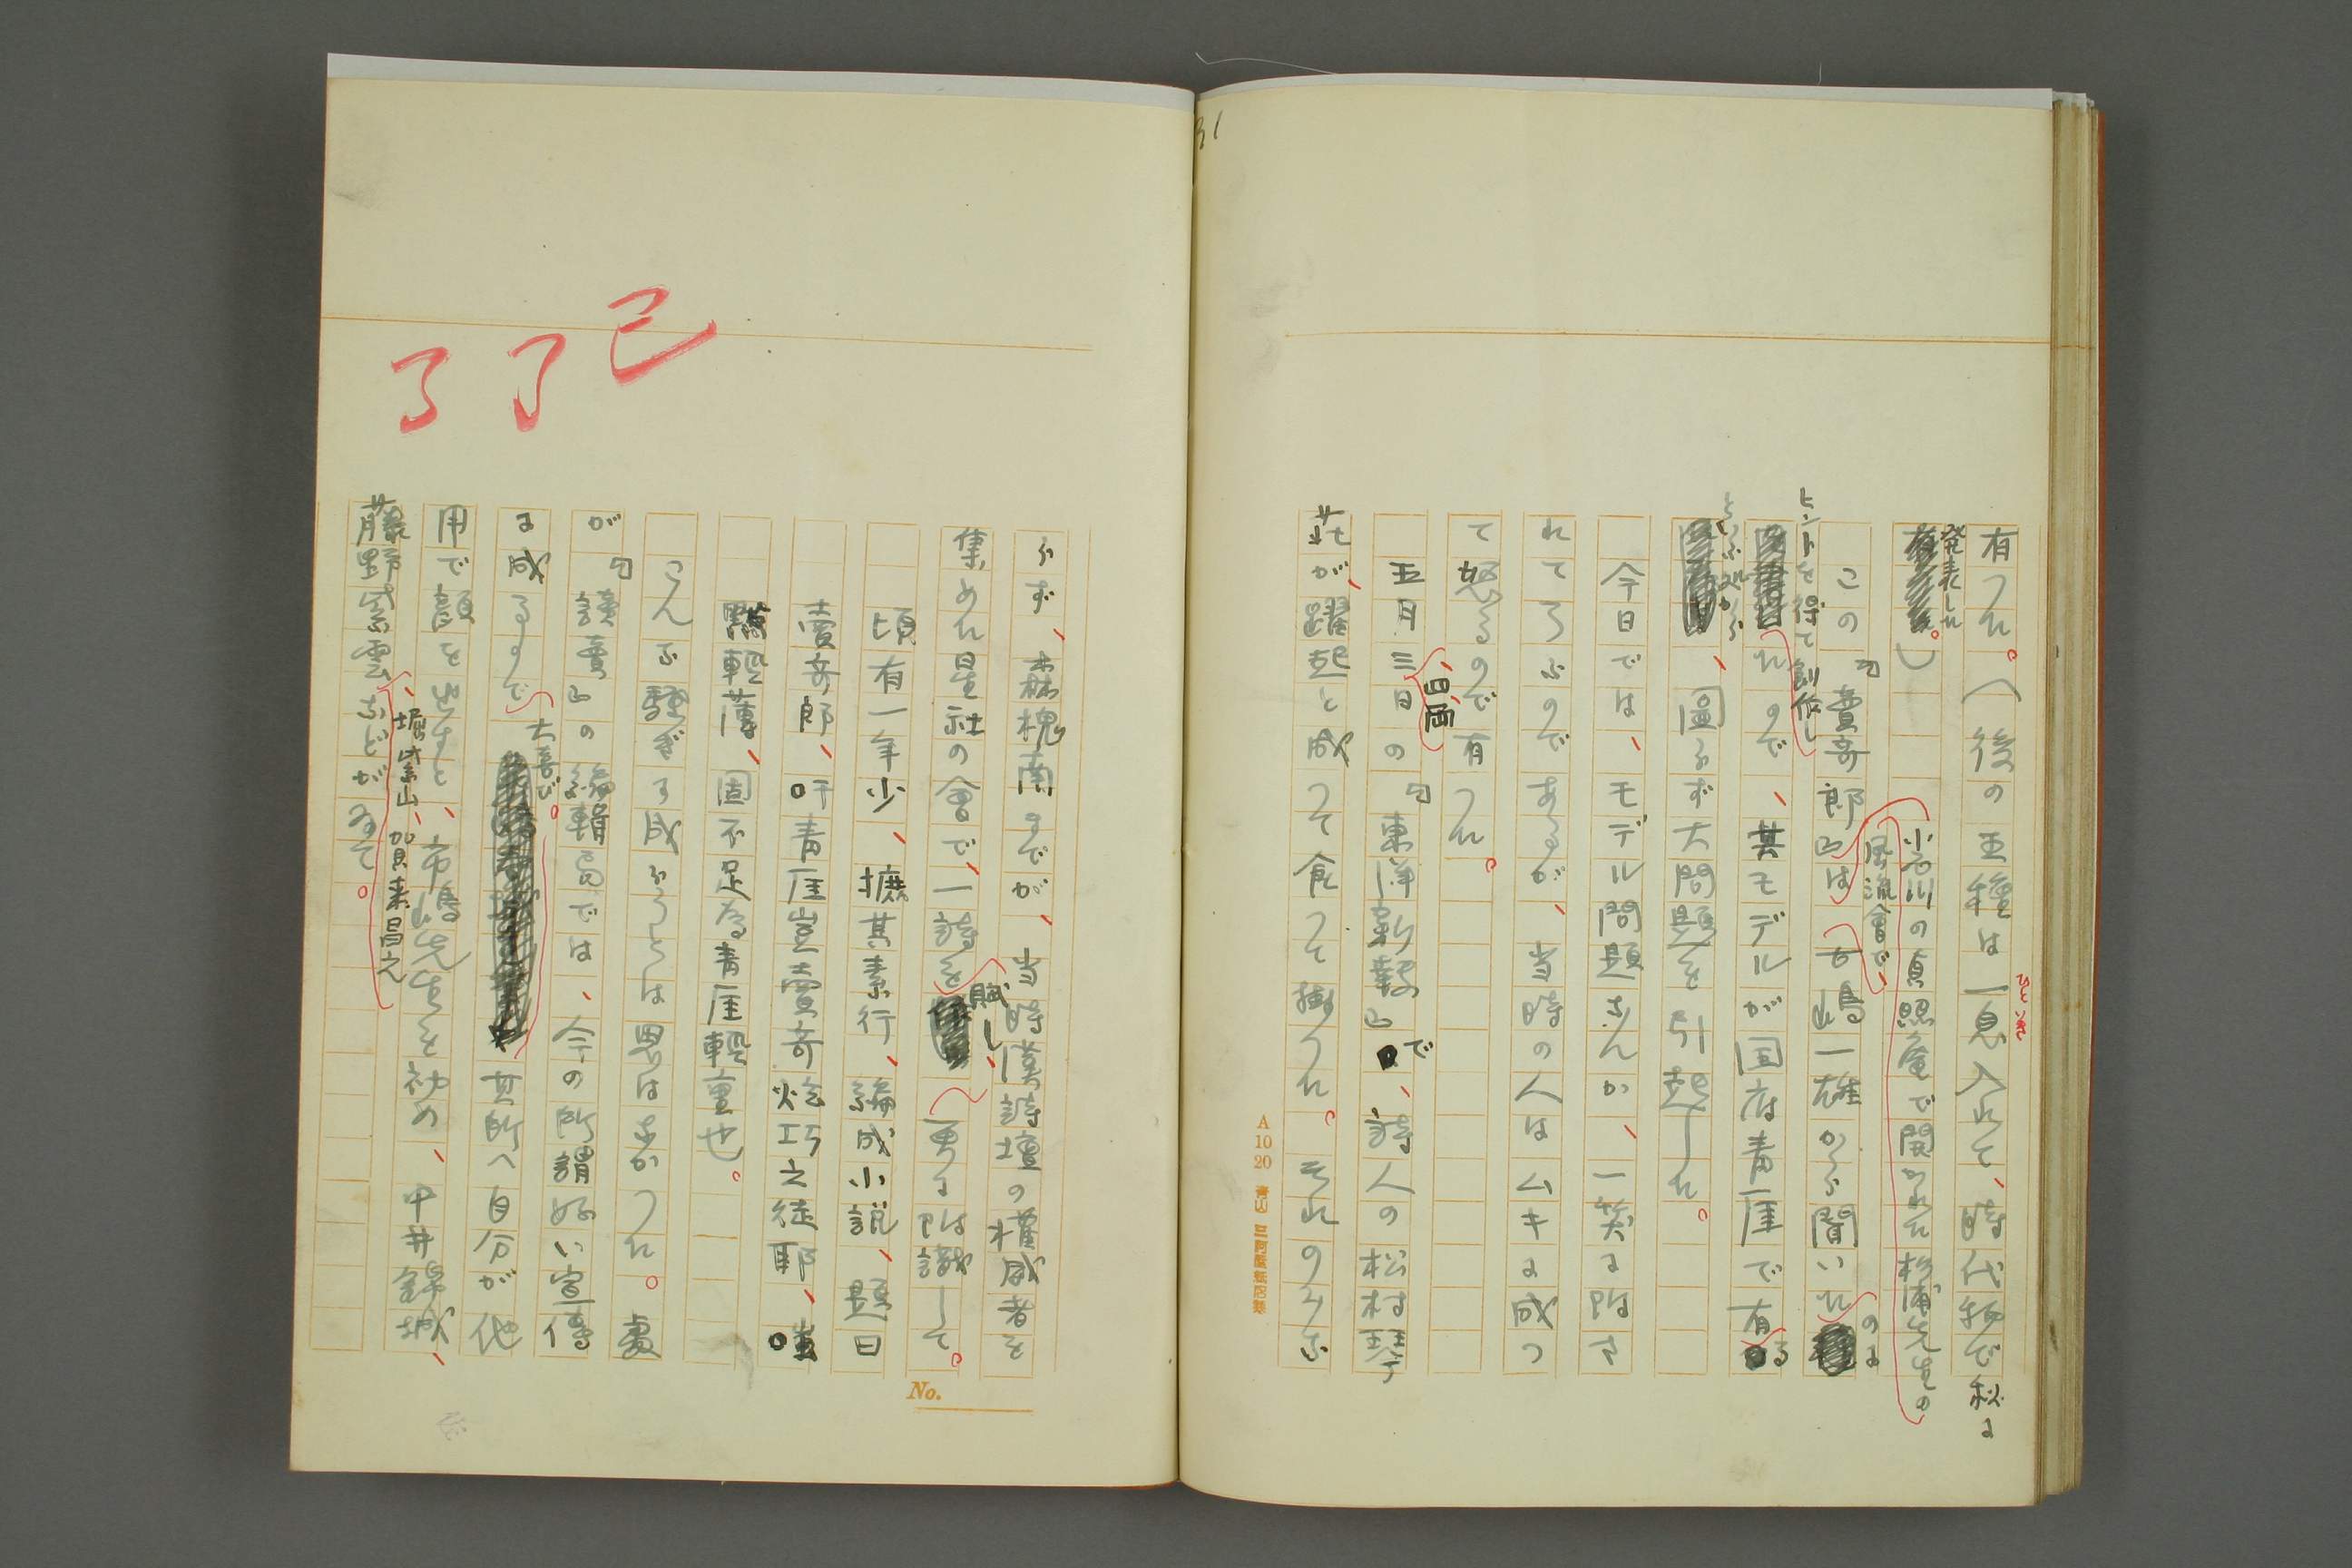 31
有つた。(後の王種は一息入れて、時代物で秋に
ひといき
発表した。)
この『賣奇郎』は小石川の貞照庵で開かれた杉浦先生の
風流會で、女嶋一雄から聞いたのに
ヒントを得て創作し
たので、其モデルが国府青厓で有る
といふ処から
、圖らず大問題を引起した。
今日では、モデル問題なんか、一笑に附さ
れてろふのであるが、当時の人はムキに成つ
て怒るのので有つた。
五月三日の『東洋新報』で、詩人の松村琴
、白岡、
荘が、躍起と成つて食つて掛つた。それのみな
A 10 20
らず、森槐南までが、当時漢詩壇の権威者を
集めた星社の會で、一詩を賦し、更に附識して。
頃有一年少、摭其素行、編成小説、題曰
賣奇郎、吁青厓豈賣奇炫巧之徒耶、嗤
黠輕薄、固不足為青厓輕重也。
こんな騒ぎに成らうとは思はなかつた。處
が『讀賣』の編輯局では、今の所謂好い宣傳
に成るまで大喜び。其所へ自分が他
用で顔を出すと、市嶋先生を初め、中井錦城、
藤野紫雲、堀紫山、加賀来昌之などがゐて。
No.
已
了
了